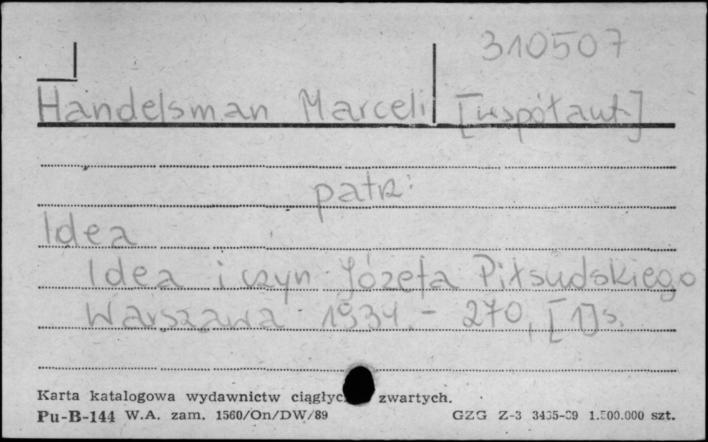 310507
Handelsman Marceli [współaut]
patrz:
Idea
Idea i czyn Józefa Piłsudskiego
Warszawa 1934. - 270, [1] s.
Karta katalogowa wydawnictw zwartych.
Pu-B-144 W.A. zam. 1560/On/DW/89 GZG Z-3 1.500.000 szt.